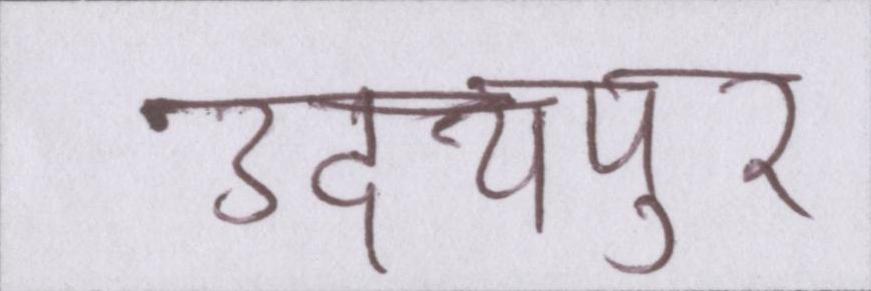 उदयपुर